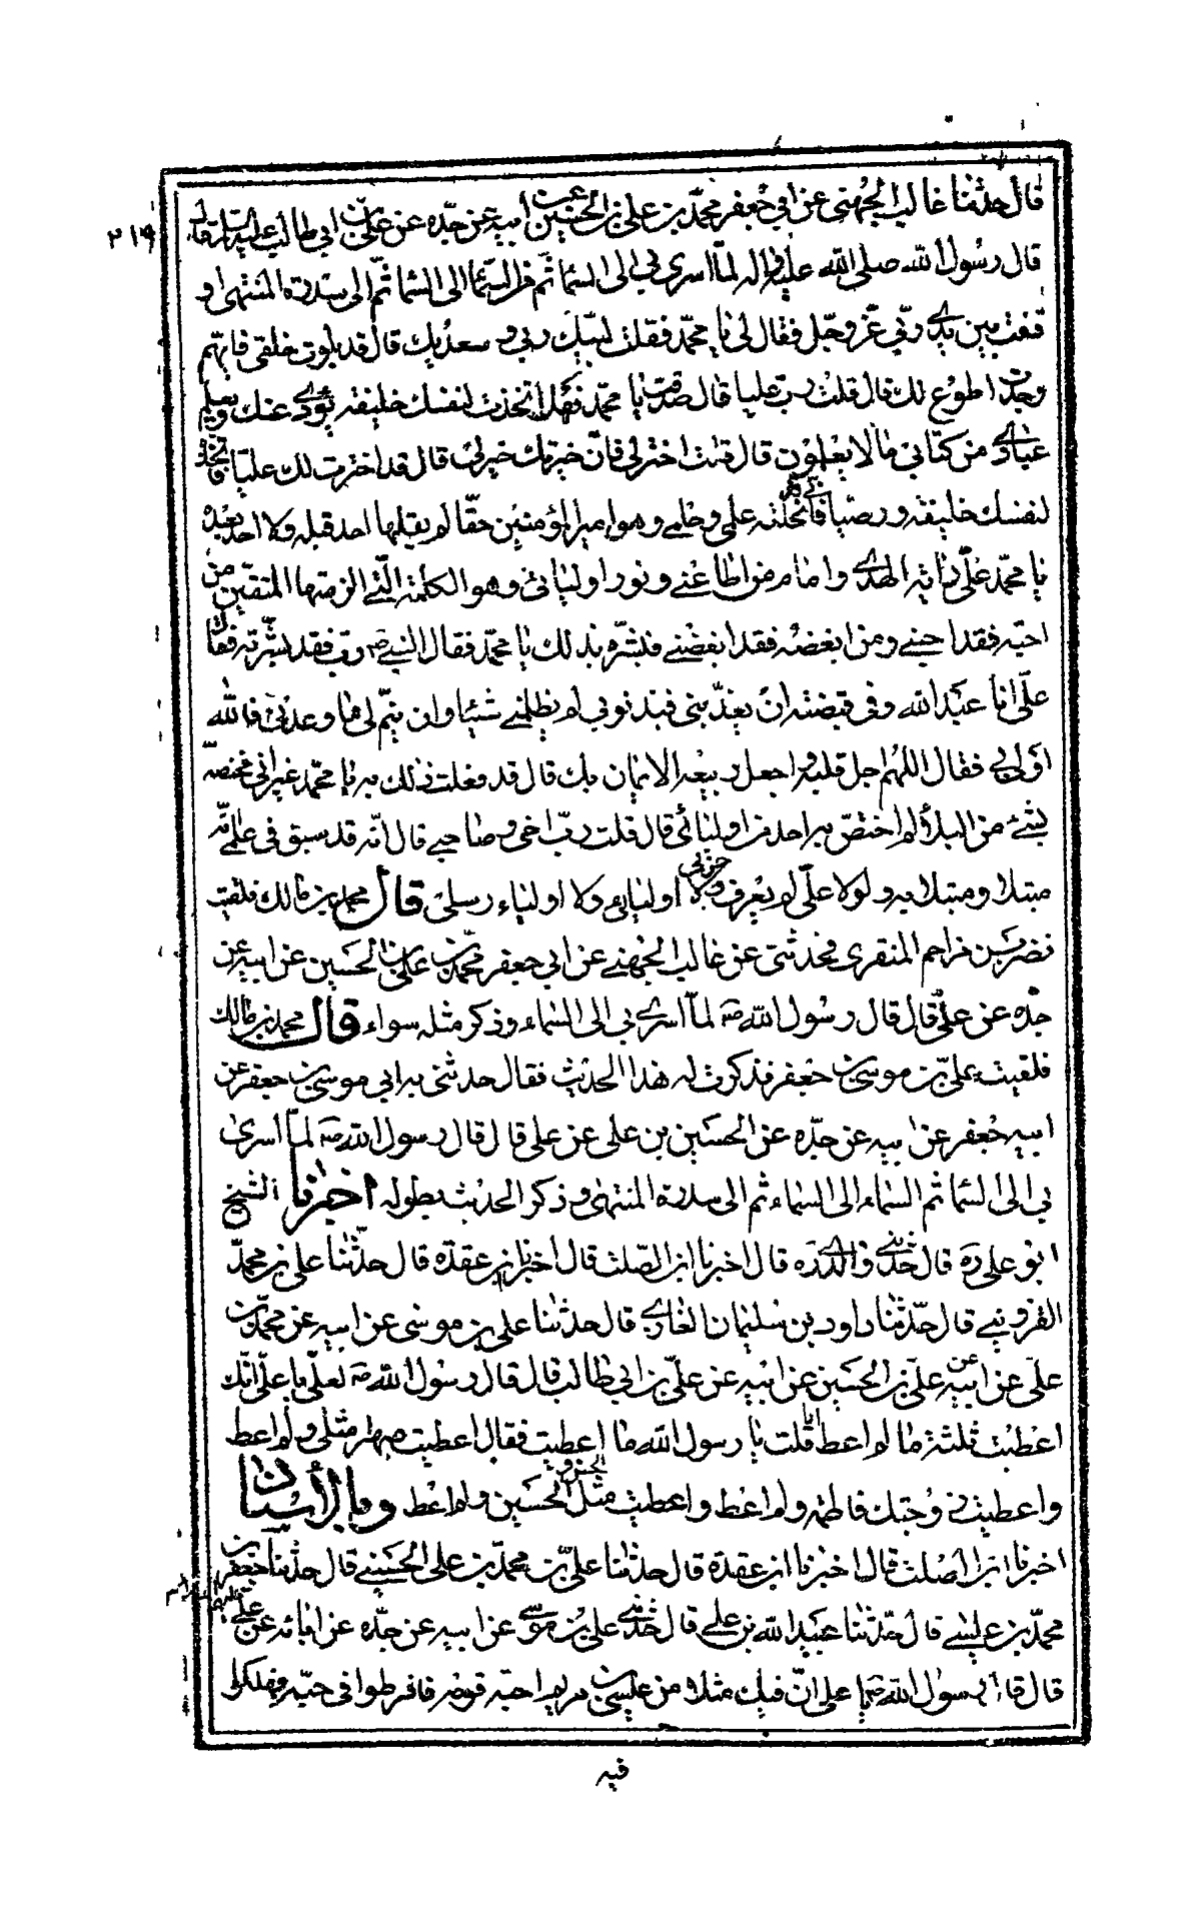 ٢١٩
قال حدثنا غالب الجهنى عن ابى جعفر محمد بن على بن الحسين عن ابيه عن جده عن على بن ابى طالب عليه السلام قال
قال رسول الله صلى الله عليه واله لما اسرى بى الى السماء ثم من السماء الى السماء ثم الى سدرة المنتهى او
قفت بين يدى ربى عز وجل فقال لى يا محمد فقلت لبيك ربى وسعديك قال قد بلوت خلقى فايهم
وجدت اطوع لك قال قلت رب عليا قال صدقت يا محمد فهل اتخذت لنفسك خليفه يؤدى عنك ويعلم
عبادى من كتابى ما لا يعلمون قال قلت اختر لى فان خيرتك خير لى قال قد اخترت لك عليا فاتخذه
لنفسك خليفه ووصيا فانى قد نحلته علمى وحلمى وهو امير المؤمنين حقا لم يقلها احد قبله ولا احد بعده
يا محمد على راية الهدى وامام من اطاعنى ونور اوليائى وهو الكلمة التى الزمتها المتقين من
احبه فقد احبنى ومن ابغضه فقد ابغضنى فبشره بذلك يا محمد فقال النبى ص رب فقد بشرته فقال
على انا عبد الله وفى قبضته ان يعذبنى فبذنوبى لم يظلمنى شيئا وان يتم لى ما وعدنى فالله
اولى بى فقال اللهم اجل قلبه واجعل ربيعه الايمان بك قال قد فعلت ذلك به يا محمد غير انى مختصه
بشئ من البلاء لم اختص به احد من اوليائى قال قلت رب اخى وصاحبى قال انه قد سبق فى علمى انه
مبتلا ومبتلا به ولولا على لم يعرف حزبى ولا اوليائى ولا اولياء رسلى قال محمد بن مالك فلقيت
نضر بن مزاحم المنقرى فحدثنى عن غالب الجهنى عن ابى جعفر محمد بن على بن الحسين عن ابيه عن
جده عن على قال قال رسول الله ص لما اسرى بى الى السماء وذكر مثله سواء قال محمد بن مالك
فلقيت على بن موسى بن جعفر فذكرت له هذا الحديث فقال حدثنى به ابى موسى بن جعفر عن
ابيه جعفر عن ابيه عن جده عن الحسين بن على عن على قال قال رسول الله ص لما اسرى
بى الى السماء ثم السماء الى السماء ثم الى سدرة المنتهى وذكر الحديث بطوله اخبرنا الشيخ
ابو على ره قال حدثنى والدى ره قال اخبرنا ابن الصلت قال اخبرنا ابن عقدة قال حدثنا على بن محمد
القزوينى قال حدثنا داود بن سليمان الغازى قال حدثنا على بن موسى عن ابيه عن محمد بن
على عن ابيه عن على بن الحسين عن ابيه عن على بن ابى طالب قال قال رسول الله ص لعلى يا على انك
اعطيت ثلثة ما لم اعط انا قلت يا رسول الله ما اعطيت فقال اعطيت صهرا مثلى ولم اعط
واعطيت زوجتك فاطمه ولم اعط واعطيت مثل الحسن و الحسين ولم اعط وبالاسناد
اخبرنا ابن الصلت قال اخبرنا ابن عقدة قال حدثنا على بن محمد بن على الحسينى قال حدثنا جعفر بن
محمد بن عيسى قال حدثنا عبيد الله بن على قال حدثنى على بن موسى عن ابيه عن جده عن ابائه عن على
قال قال رسول الله ص يا على ان فيك مثلا من عيسى بن مريم احبه قومه فافرطوا فى حبه فهلكوا
فيه